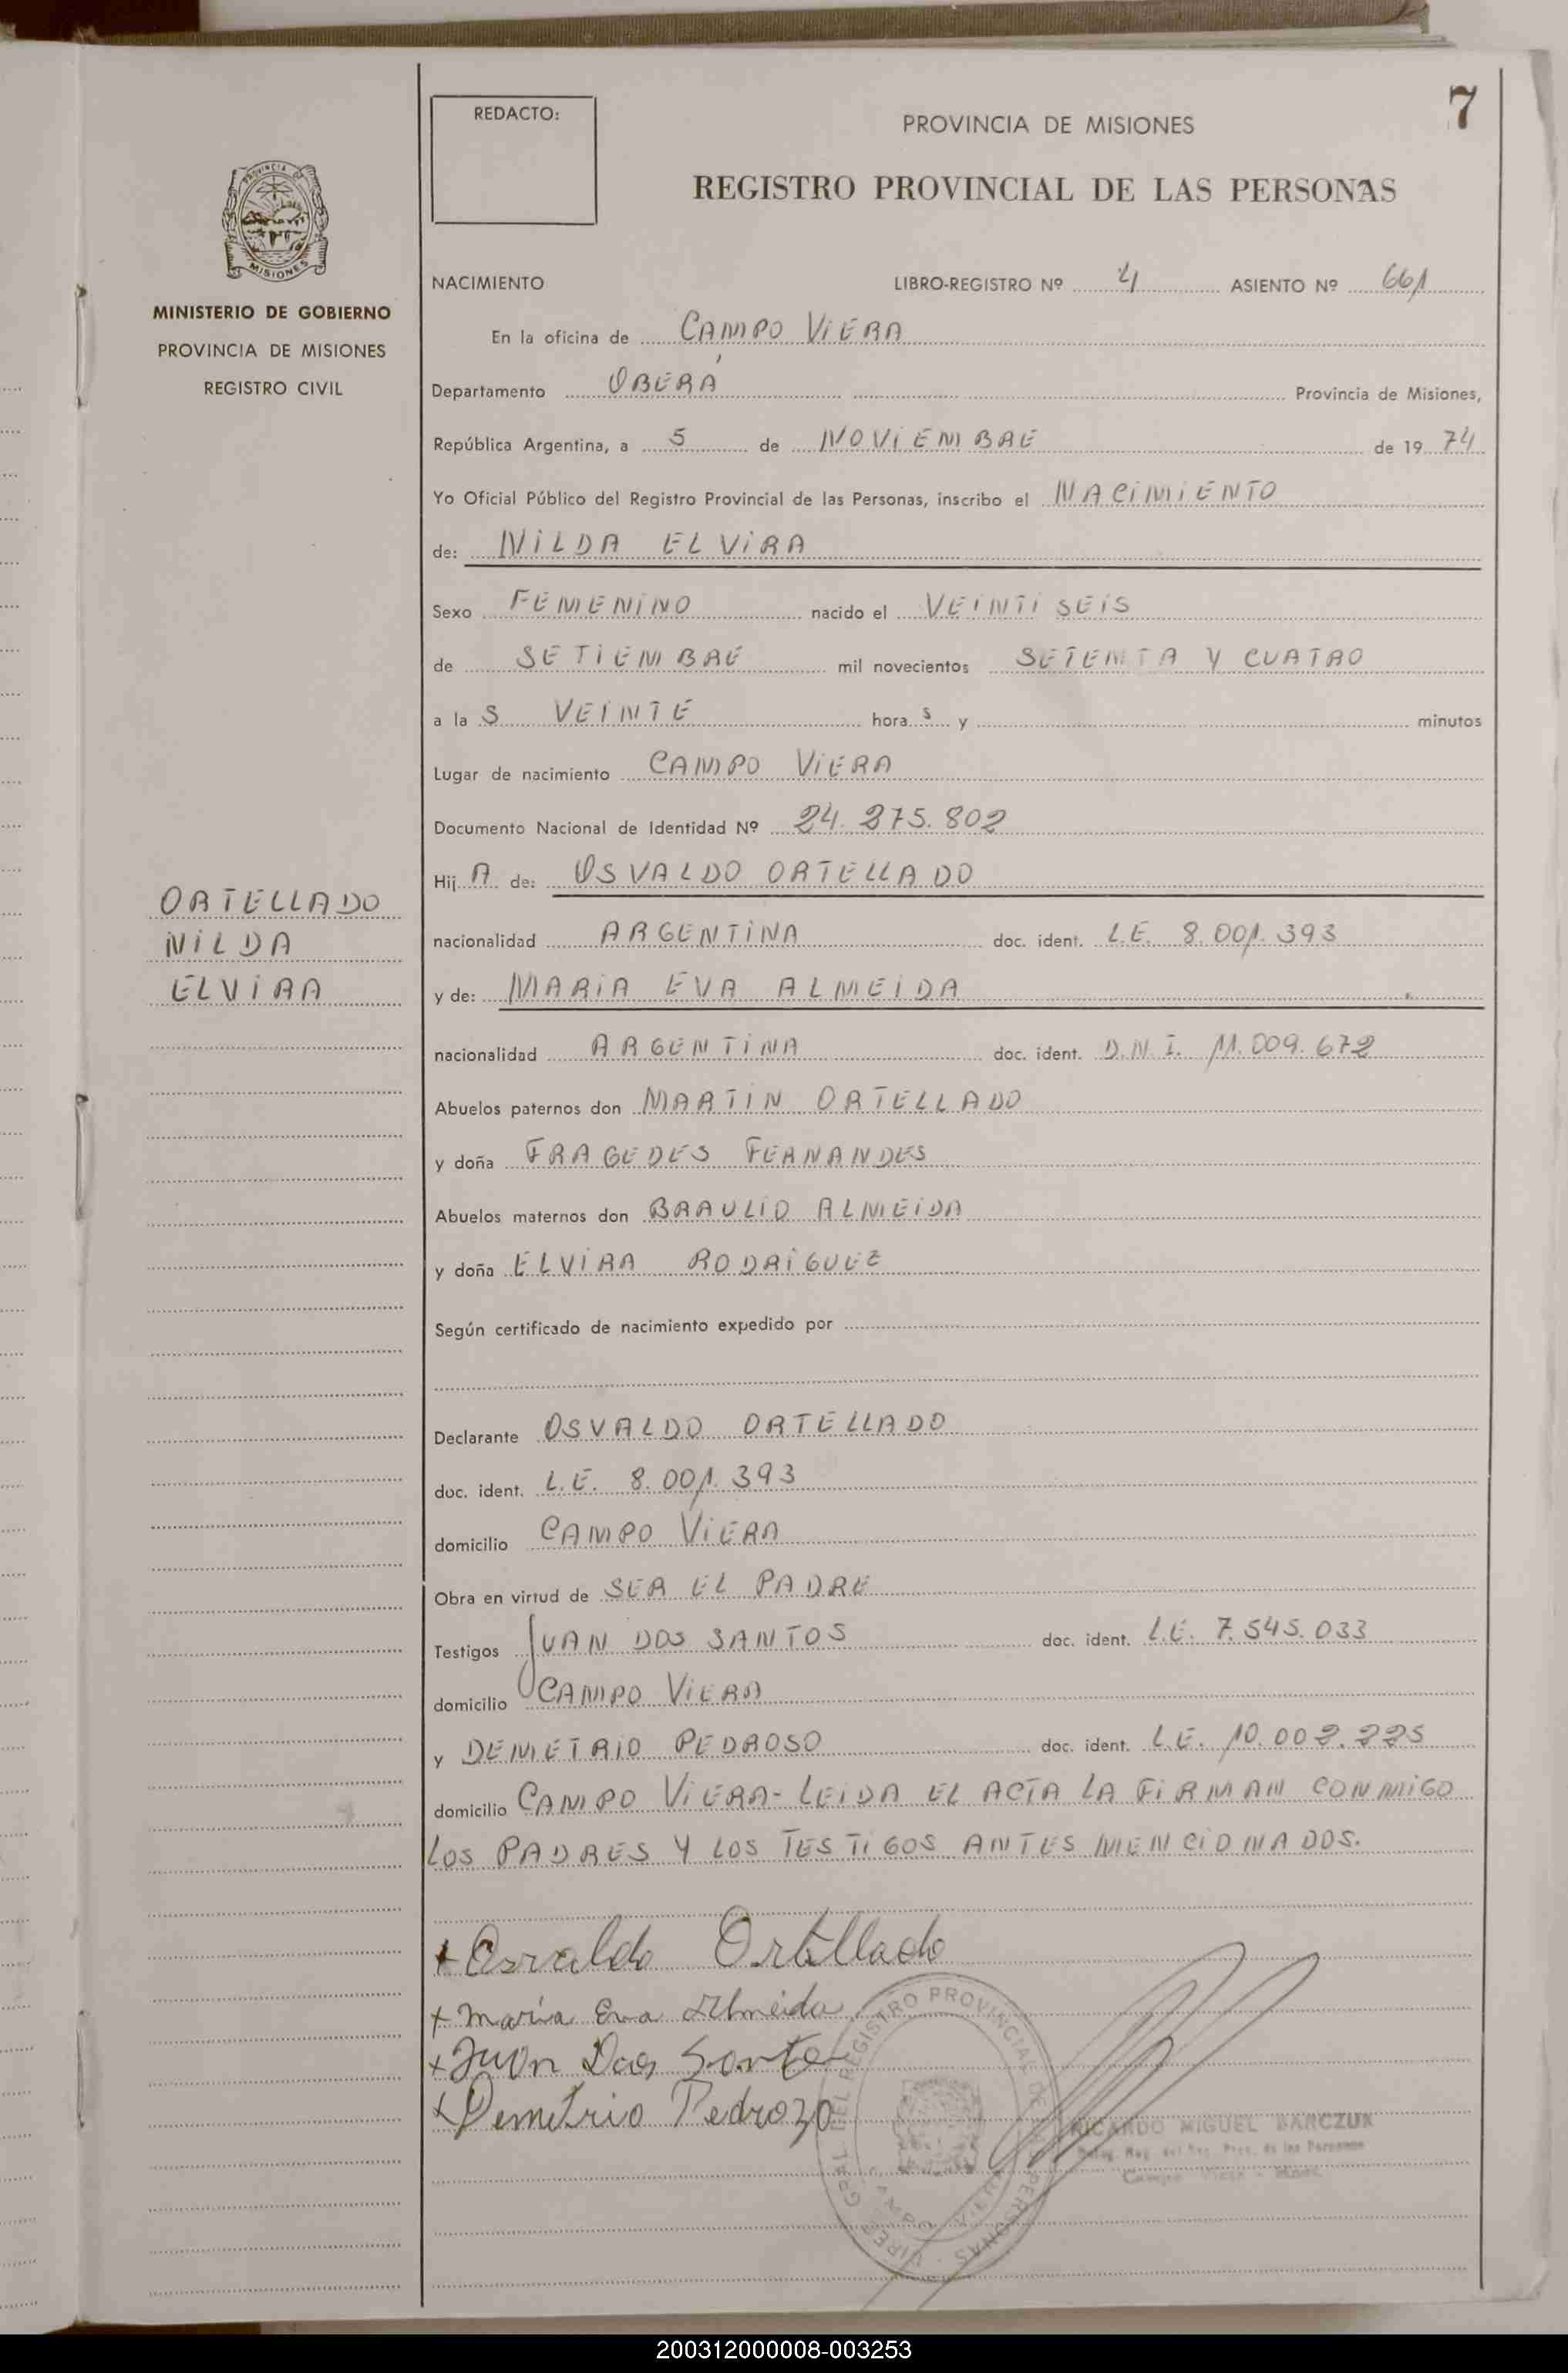 7
REDACTO:
PROVINCIA DE MISIONES
REGISTRO PROVINCIAL DE LAS PERSONAS
PROVINCIA DE
MISIONES
MINISTERIO DE GOBIERNO
PROVINCIA DE MISIONES
REGISTRO CIVIL
NACIMIENTO LIBRO-REGISTRO Nº 4 ASIENTO Nº 661
En la oficina de CAMPO VIERA
Departamento OBERÁ Provincia de Misiones,
República Argentina, a 5 de NOVIEMBRE de 1974
Yo Oficial Público del Registro Provincial de las Personas, inscribo el NACIMIENTO
de: NILDA ELVIRA
Sexo FEMENINO nacido el VEINTISEIS
de SETIEMBRE mil novecientos SETENTA Y CUATRO
a la S VEINTE hora s y minutos
Lugar de nacimiento CAMPO VIERA
Documento Nacional de Identidad Nº 24.275.802
Hij A de: OSVALDO ORTELLADO
ORTELLADO
NILDA
ELVIRA
nacionalidad ARGENTINA doc. ident. L.E. 8.001.393
y de: MARIA EVA ALMEIDA
nacionalidad ARGENTINA doc. ident. D.N.I. 11.009.672
Abuelos paternos don MARTIN ORTELLADO
y doña FRAGEDES FERNANDES
Abuelos maternos don BRAULIO ALMEIDA
y doña ELVIRA RODRIGUEZ
Según certificado de nacimiento expedido por
Declarante OSVALDO ORTELLADO
doc. ident. L.E. 8.001.393
domicilio CAMPO VIERA
Obra en virtud de SER EL PADRE
Testigos JUAN DOS SANTOS doc. ident. L.E. 7.545.033
domicilio CAMPO VIERA
y DEMETRIO PEDROSO doc. ident. L.E. 10.002.225
domicilio CAMPO VIERA- LEIDA EL ACTA LA FIRMAN CONMIGO
LOS PADRES Y LOS TESTIGOS ANTES MENCIONADOS.
+ Osvaldo Ortellado
+ Maria Eva Almeida
+ Juan Dos Santo
+ Demetrio Pedrozo
REGISTRO PROVINCIAL DE LAS PERSONAS
RICARDO MIGUEL BARCZUK
200312000008-003253